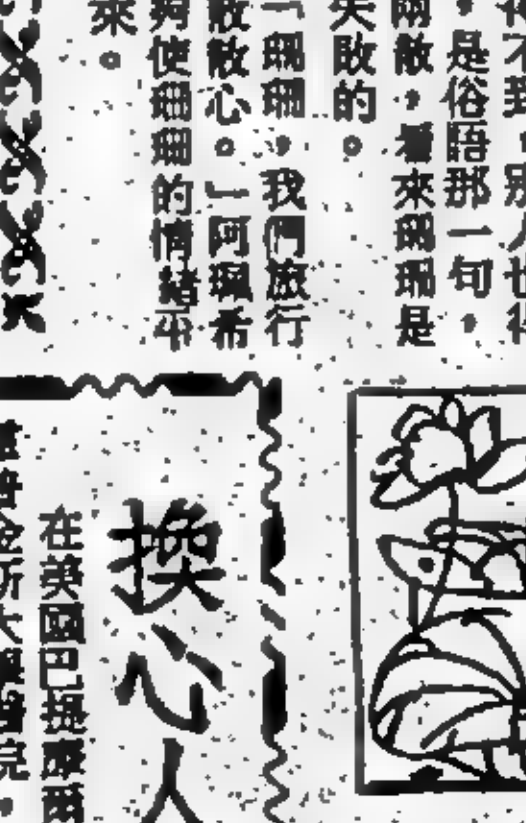 得不對，別人也得
，是俗語那一句，
兩敵，看來珊珊是
失敗的。
「珊珊，我們旅行
散散心。」阿珮希
夠使珊珊的情緒平
來。
換心人
在美國巴提
金斯大學醫院，